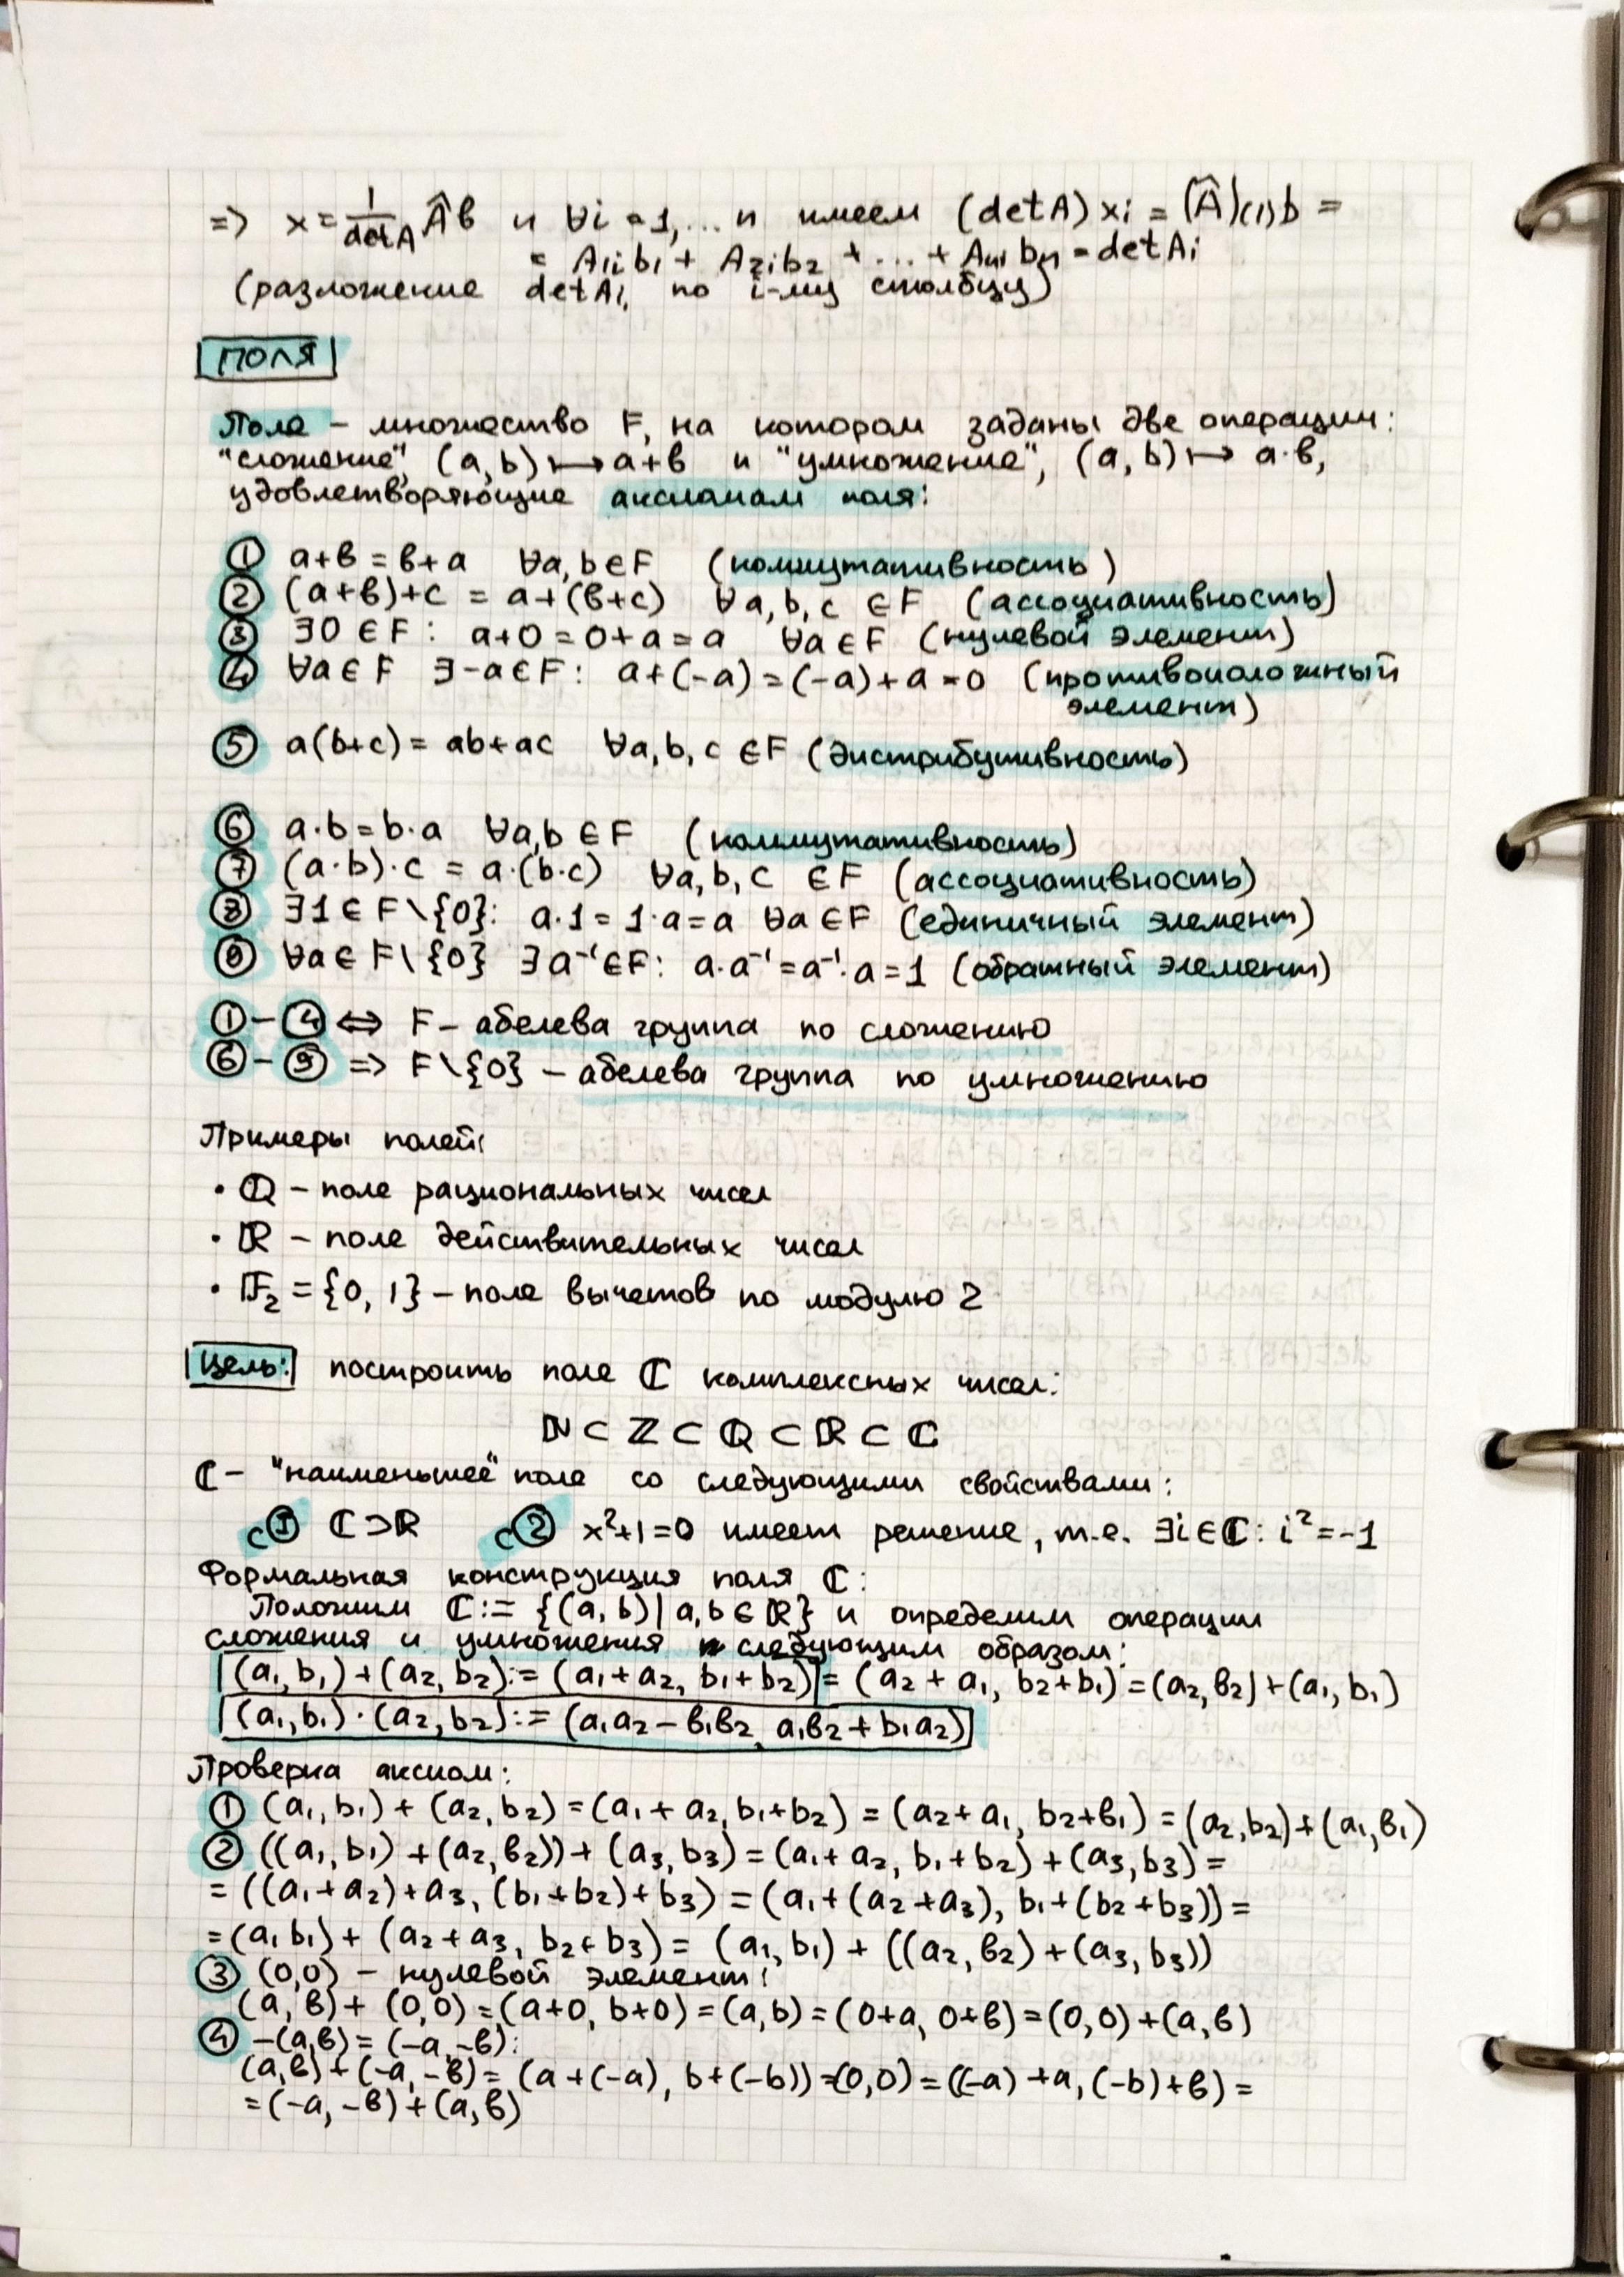 => x = 1/detA Âb и ∀i=1,...n имеем (detA)xi = (Â)(i)b =
= A1ib1 + A2ib2 + ... + Anibn = detAi
(разложение detAi по i-му столбцу)
ПОЛЯ
Поле – множество F, на котором заданы две операции:
"сложение", (a,b) ↦ a+b и "умножение", (a,b) ↦ a·b,
удовлетворяющие аксиомам поля:
① a+b = b+a ∀a,b∈F (коммутативность)
② (a+b)+c = a+(b+c) ∀a,b,c ∈F (ассоциативность)
③ ∃0∈F: a+0=0+a=a ∀a∈F (нулевой элемент)
④ ∀a∈F ∃-a∈F: a+(-a)=(-a)+a=0 (противоположный
элемент)
⑤ a(b+c) = ab+ac ∀a,b,c ∈F (дистрибутивность)
⑥ a·b=b·a ∀a,b ∈F (коммутативность)
⑦ (a·b)·c = a·(b·c) ∀a,b,c ∈F (ассоциативность)
⑧ ∃1∈F\{0}: a·1=1·a=a ∀a∈F (единичный элемент)
⑨ ∀a∈F\{0} ∃a⁻¹∈F: a·a⁻¹=a⁻¹·a=1 (обратный элемент)
①–④ ⇔ F – абелева группа по сложению
⑥–⑨ => F\{0} – абелева группа по умножению
Примеры полей:
• ℚ – поле рациональных чисел
• ℝ – поле действительных чисел
• 𝔽₂ = {0, 1} – поле вычетов по модулю 2
Цель: построить поле ℂ комплексных чисел:
ℕ ⊂ ℤ ⊂ ℚ ⊂ ℝ ⊂ ℂ
ℂ – "наименьшее" поле со следующими свойствами:
C① ℂ⊃ℝ C② x²+1=0 имеет решение, т.е. ∃i∈ℂ: i²=-1
Формальная конструкция поля ℂ:
Положим ℂ := {(a,b)| a,b∈ℝ} и определим операции
сложения и умножения следующим образом:
(a₁,b₁)+(a₂,b₂):=(a₁+a₂, b₁+b₂) = (a₂+a₁, b₂+b₁)=(a₂,b₂)+(a₁,b₁)
(a₁,b₁)·(a₂,b₂):=(a₁a₂-b₁b₂, a₁b₂+b₁a₂)
Проверка аксиом:
① (a₁,b₁)+(a₂,b₂)=(a₁+a₂,b₁+b₂)=(a₂+a₁, b₂+b₁)=(a₂,b₂)+(a₁,b₁)
② ((a₁,b₁)+(a₂,b₂))+(a₃,b₃)=(a₁+a₂, b₁+b₂)+(a₃,b₃)=
=((a₁+a₂)+a₃, (b₁+b₂)+b₃)=(a₁+(a₂+a₃), b₁+(b₂+b₃))=
=(a₁ b₁)+(a₂+a₃, b₂+b₃)= (a₁,b₁)+((a₂,b₂)+(a₃,b₃))
③ (0,0) – нулевой элемент:
(a,b)+(0,0)=(a+0, b+0)=(a,b)=(0+a, 0+b)=(0,0)+(a,b)
④ -(a,b)=(-a,-b):
(a,b)+(-a,-b)= (a+(-a), b+(-b))=(0,0)=((-a)+a,(-b)+b)=
=(-a,-b)+(a,b)